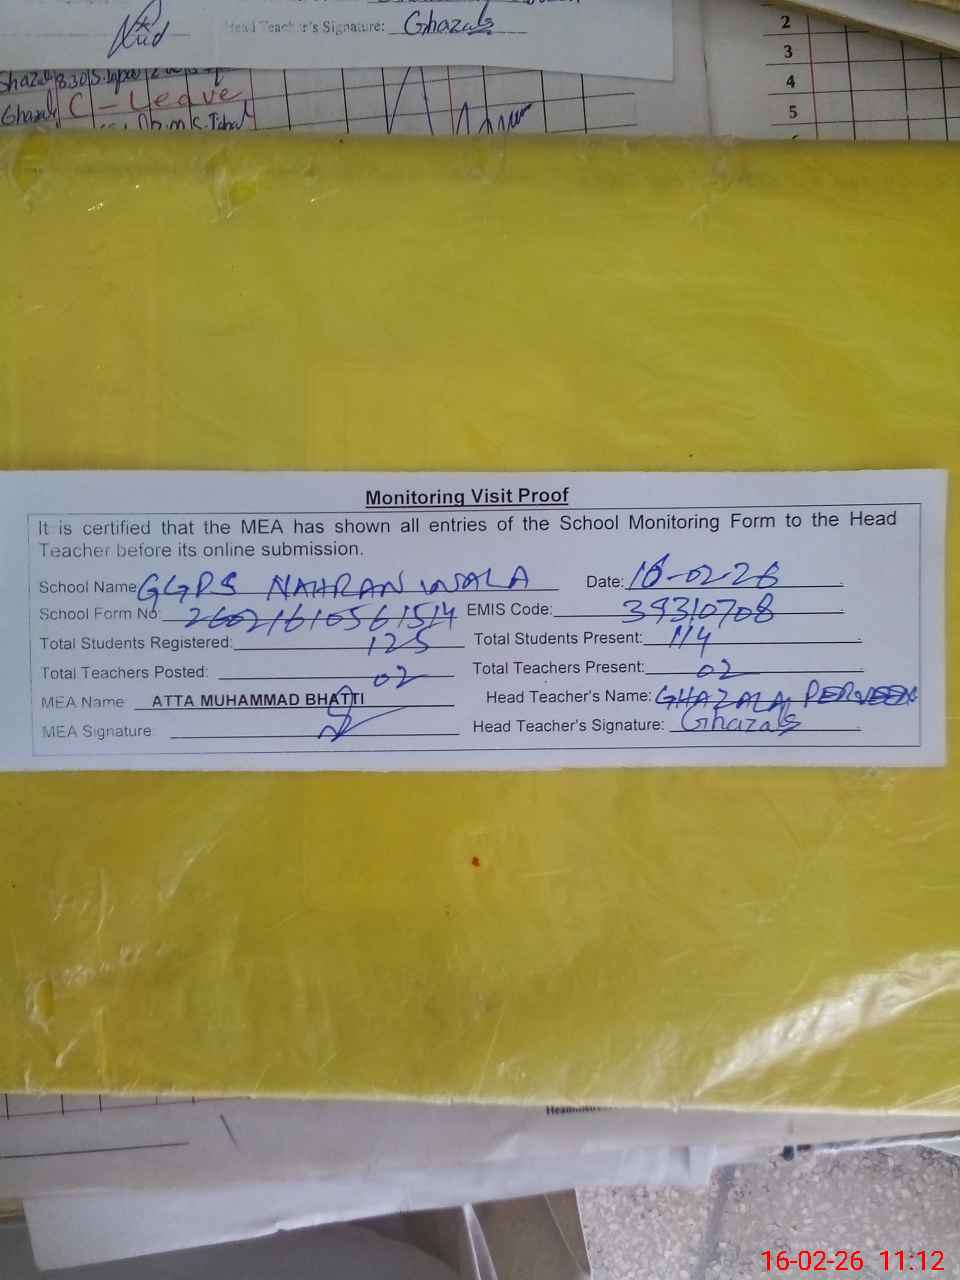 Head Teacher's Signature: Ghazala
2
3
4
5
Ghazal 8.30
Ghazal C - Leave
Monitoring Visit Proof
It is certified that the MEA has shown all entries of the School Monitoring Form to the Head
Teacher before its online submission.
School Name GGPS NAHRAN WALA Date: 16-02-26
School Form No: EMIS Code: 39310708
Total Students Registered: 125 Total Students Present: 114
Total Teachers Posted: 02 Total Teachers Present: 02
MEA Name ATTA MUHAMMAD BHATTI Head Teacher's Name: GHAZALA PERVEEN
MEA Signature: Head Teacher's Signature: Ghazala
16-02-26 11:12